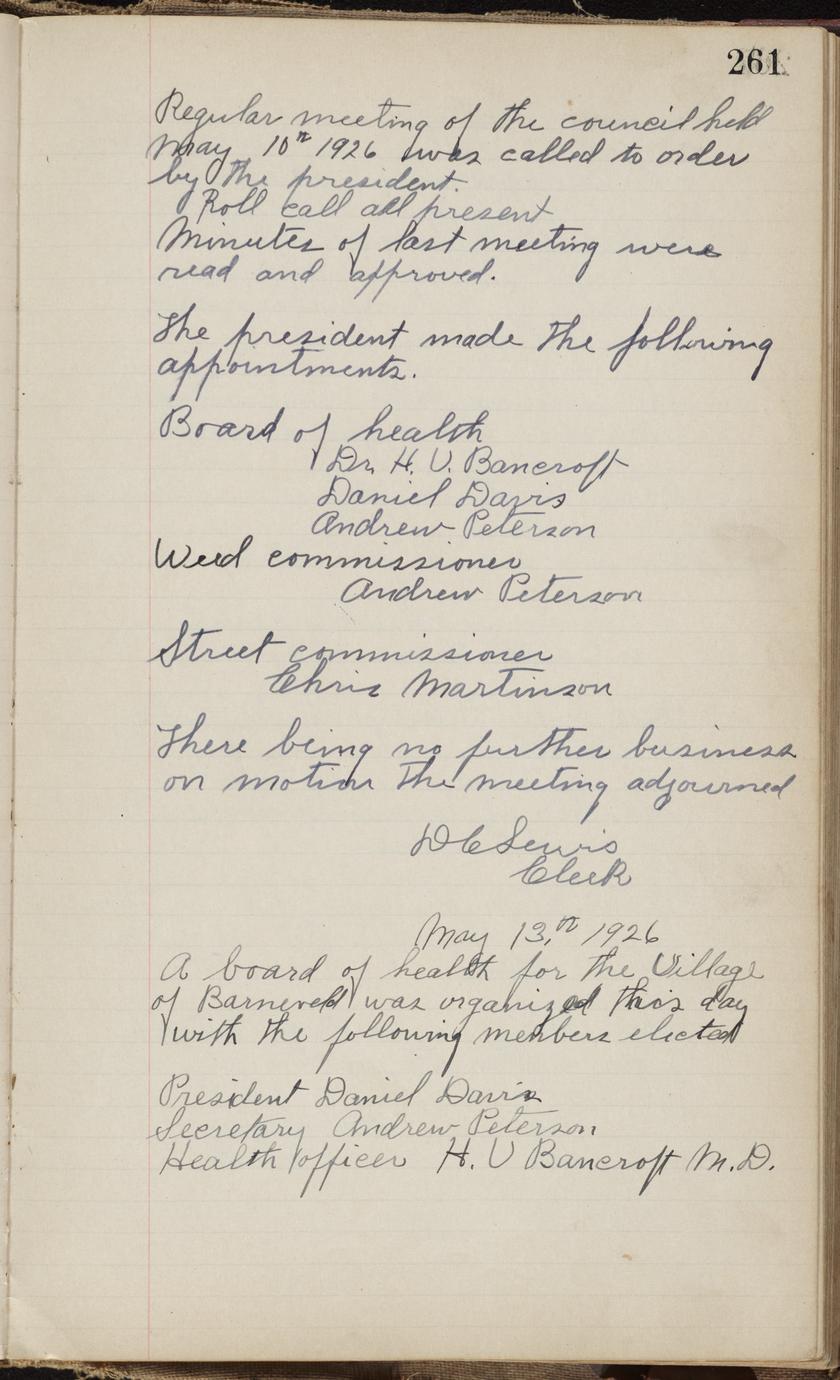 261
Regular meeting of the council held
May 10th 1926 was called to order
by the president.
Roll call all present
Minutes of last meeting were
read and approved.
The president made the following
appointments.
Board of health
Dr. H. V. Bancroft
Daniel Davis
Andrew Peterson
Weed commissioner
Andrew Peterson
Street commissioner
Chris Martinson
There being no further business
on motion the meeting adjourned
D C Lewis
Clerk
May 13,th 1926
A board of health for the Village
of Barneveld was organized this day
with the following members elected
President Daniel Davis
Secretary Andrew Peterson
Health officer H. V Bancroft M.D.